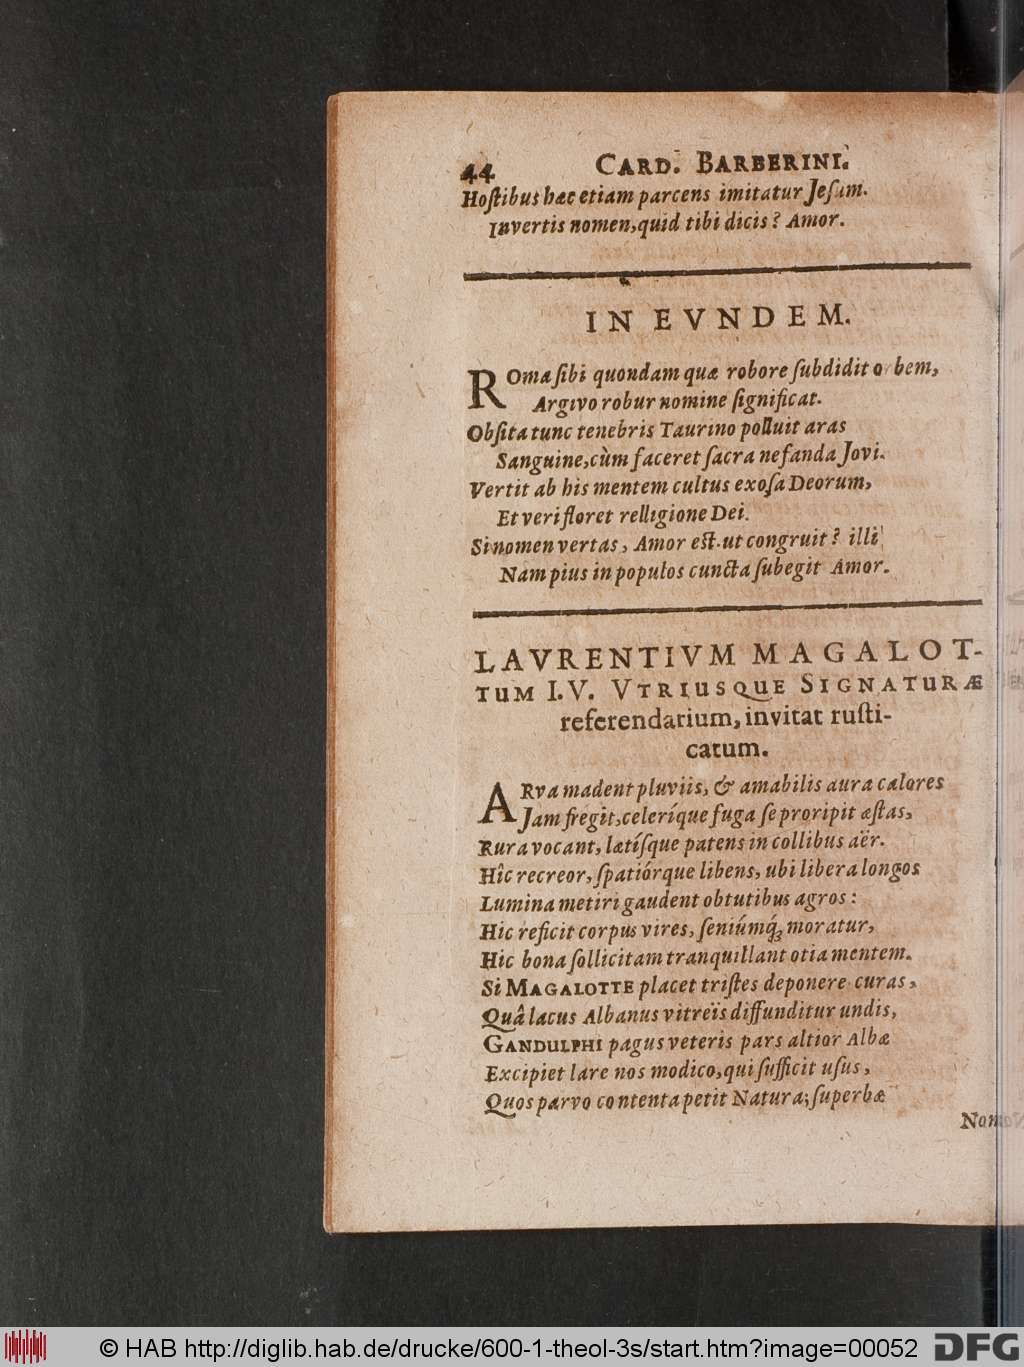 44 CARD. BARBERINI.
Hoſtibus hæc etiam parcens imitatur Jeſum.
Invertis nomen, quid tibi dicis? Amor.
IN EVNDEM.
ROma ſibi quondam quæ robore ſubdidit orbem,
Argivo robur nomine ſignificat.
Obſita tunc tenebris Taurino polluit aras
Sanguine, cùm faceret ſacra nefanda Jovi.
Vertit ab his mentem cultus exoſa Deorum,
Et veri floret relligione Dei.
Si nomen vertas, Amor eſt. ut congruit? illi
Nam pius in populos cuncta ſubegit Amor.
LAVRENTIVM MAGALOT-
TUM I.V. VTRIUSQUE SIGNATURÆ
referendarium, invitat ruſti-
catum.
ARva madent pluviis, & amabilis aura calores
Jam fregit, celeríque fuga ſe proripit æſtas,
Rura vocant, latíſque patens in collibus aër.
Hîc recreor, ſpatiórque libens, ubi libera longos
Lumina metiri gaudent obtutibus agros:
Hic reficit corpus vires, ſeniúmq́; moratur,
Hic bona ſollicitam tranquillant otia mentem.
Si MAGALOTTE placet triſtes deponere curas,
Quâ lacus Albanus vitreïs diffunditur undis,
GANDULPHI pagus veteris pars altior Albæ
Excipiet lare nos modico, qui ſufficit uſus,
Quos parvo contenta petit Natura; ſuperbæ
© HAB http://diglib.hab.de/drucke/600-1-theol-3s/start.htm?image=00052 DFG